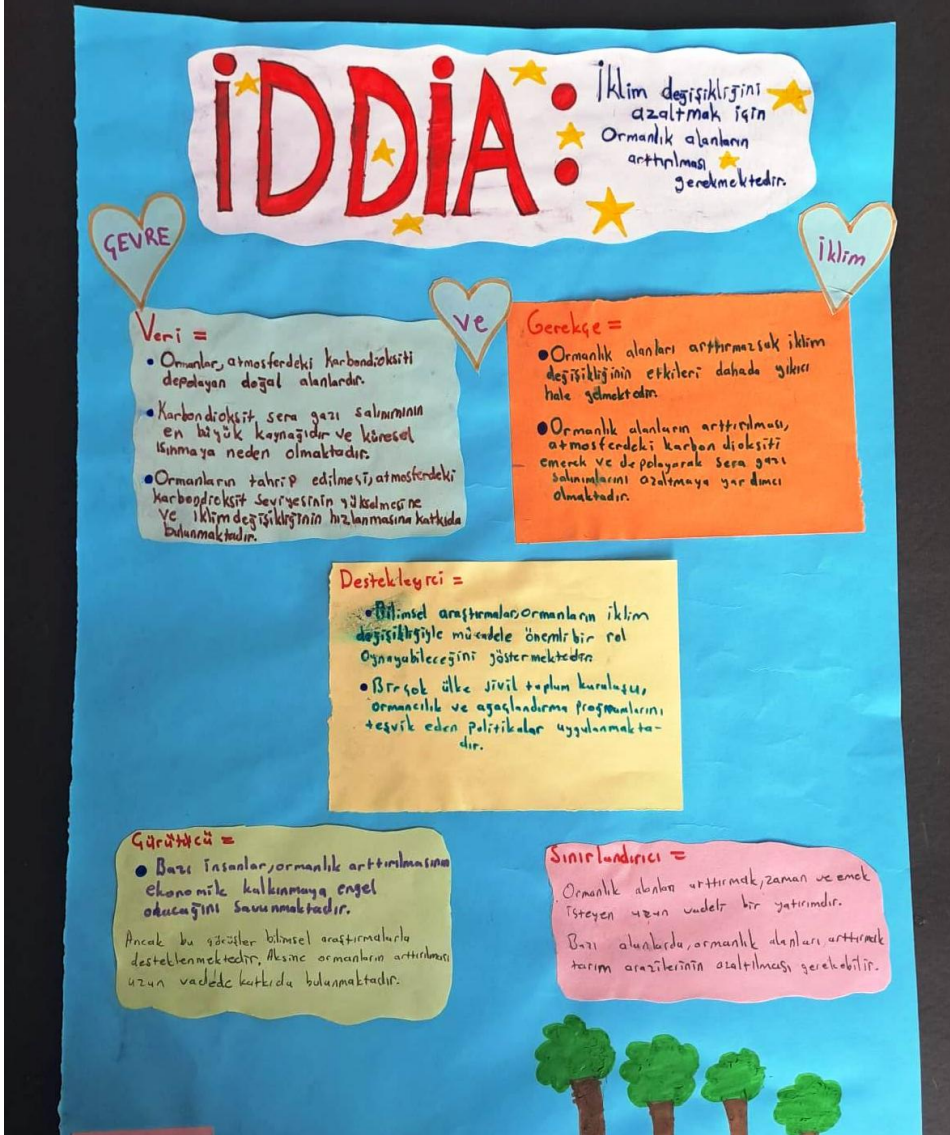 İDDİA:
İklim değişikliğini
azaltmak için
Ormanlık alanların
arttırılması
gerekmektedir.
ÇEVRE
ve
İklim
Veri =
• Ormanlar, atmosferdeki karbondioksiti
depolayan doğal alanlardır.
• Karbondioksit sera gazı salınımının
en büyük kaynağıdır ve küresel
ısınmaya neden olmaktadır.
• Ormanların tahrip edilmesi, atmosferdeki
karbondioksit seviyesinin yükselmesine
ve iklim değişikliğinin hızlanmasına katkıda
bulunmaktadır.
Gerekçe =
• Ormanlık alanları arttırmazsak iklim
değişikliğinin etkileri dahada yıkıcı
hale gelmektedir.
• Ormanlık alanların arttırılması,
atmosferdeki karbon dioksiti
emerek ve depolayarak sera gazı
salınımlarını azaltmaya yardımcı
olmaktadır.
Destekleyici =
• Bilimsel araştırmalar, ormanların iklim
değişikliğiyle mücadele önemli bir rol
Oynayabileceğini göstermektedir.
• Birçok ülke sivil toplum kuruluşu,
ormancılık ve ağaçlandırma programlarını
teşvik eden politikalar uygulanmakta-
dır.
Çürütücü =
• Bazı insanlar, ormanlık arttırılmasının
ekonomik kalkınmaya engel
olacağını savunmaktadır.
Ancak bu görüşler bilimsel araştırmalarla
desteklenmektedir. Aksine ormanların arttırılması
uzun vadede katkıda bulunmaktadır.
Sınırlandırıcı =
Ormanlık alanları arttırmak, zaman ve emek
isteyen uzun vadeli bir yatırımdır.
Bazı alanlarda, ormanlık alanları arttırmak
tarım arazilerinin azaltılması gerekebilir.